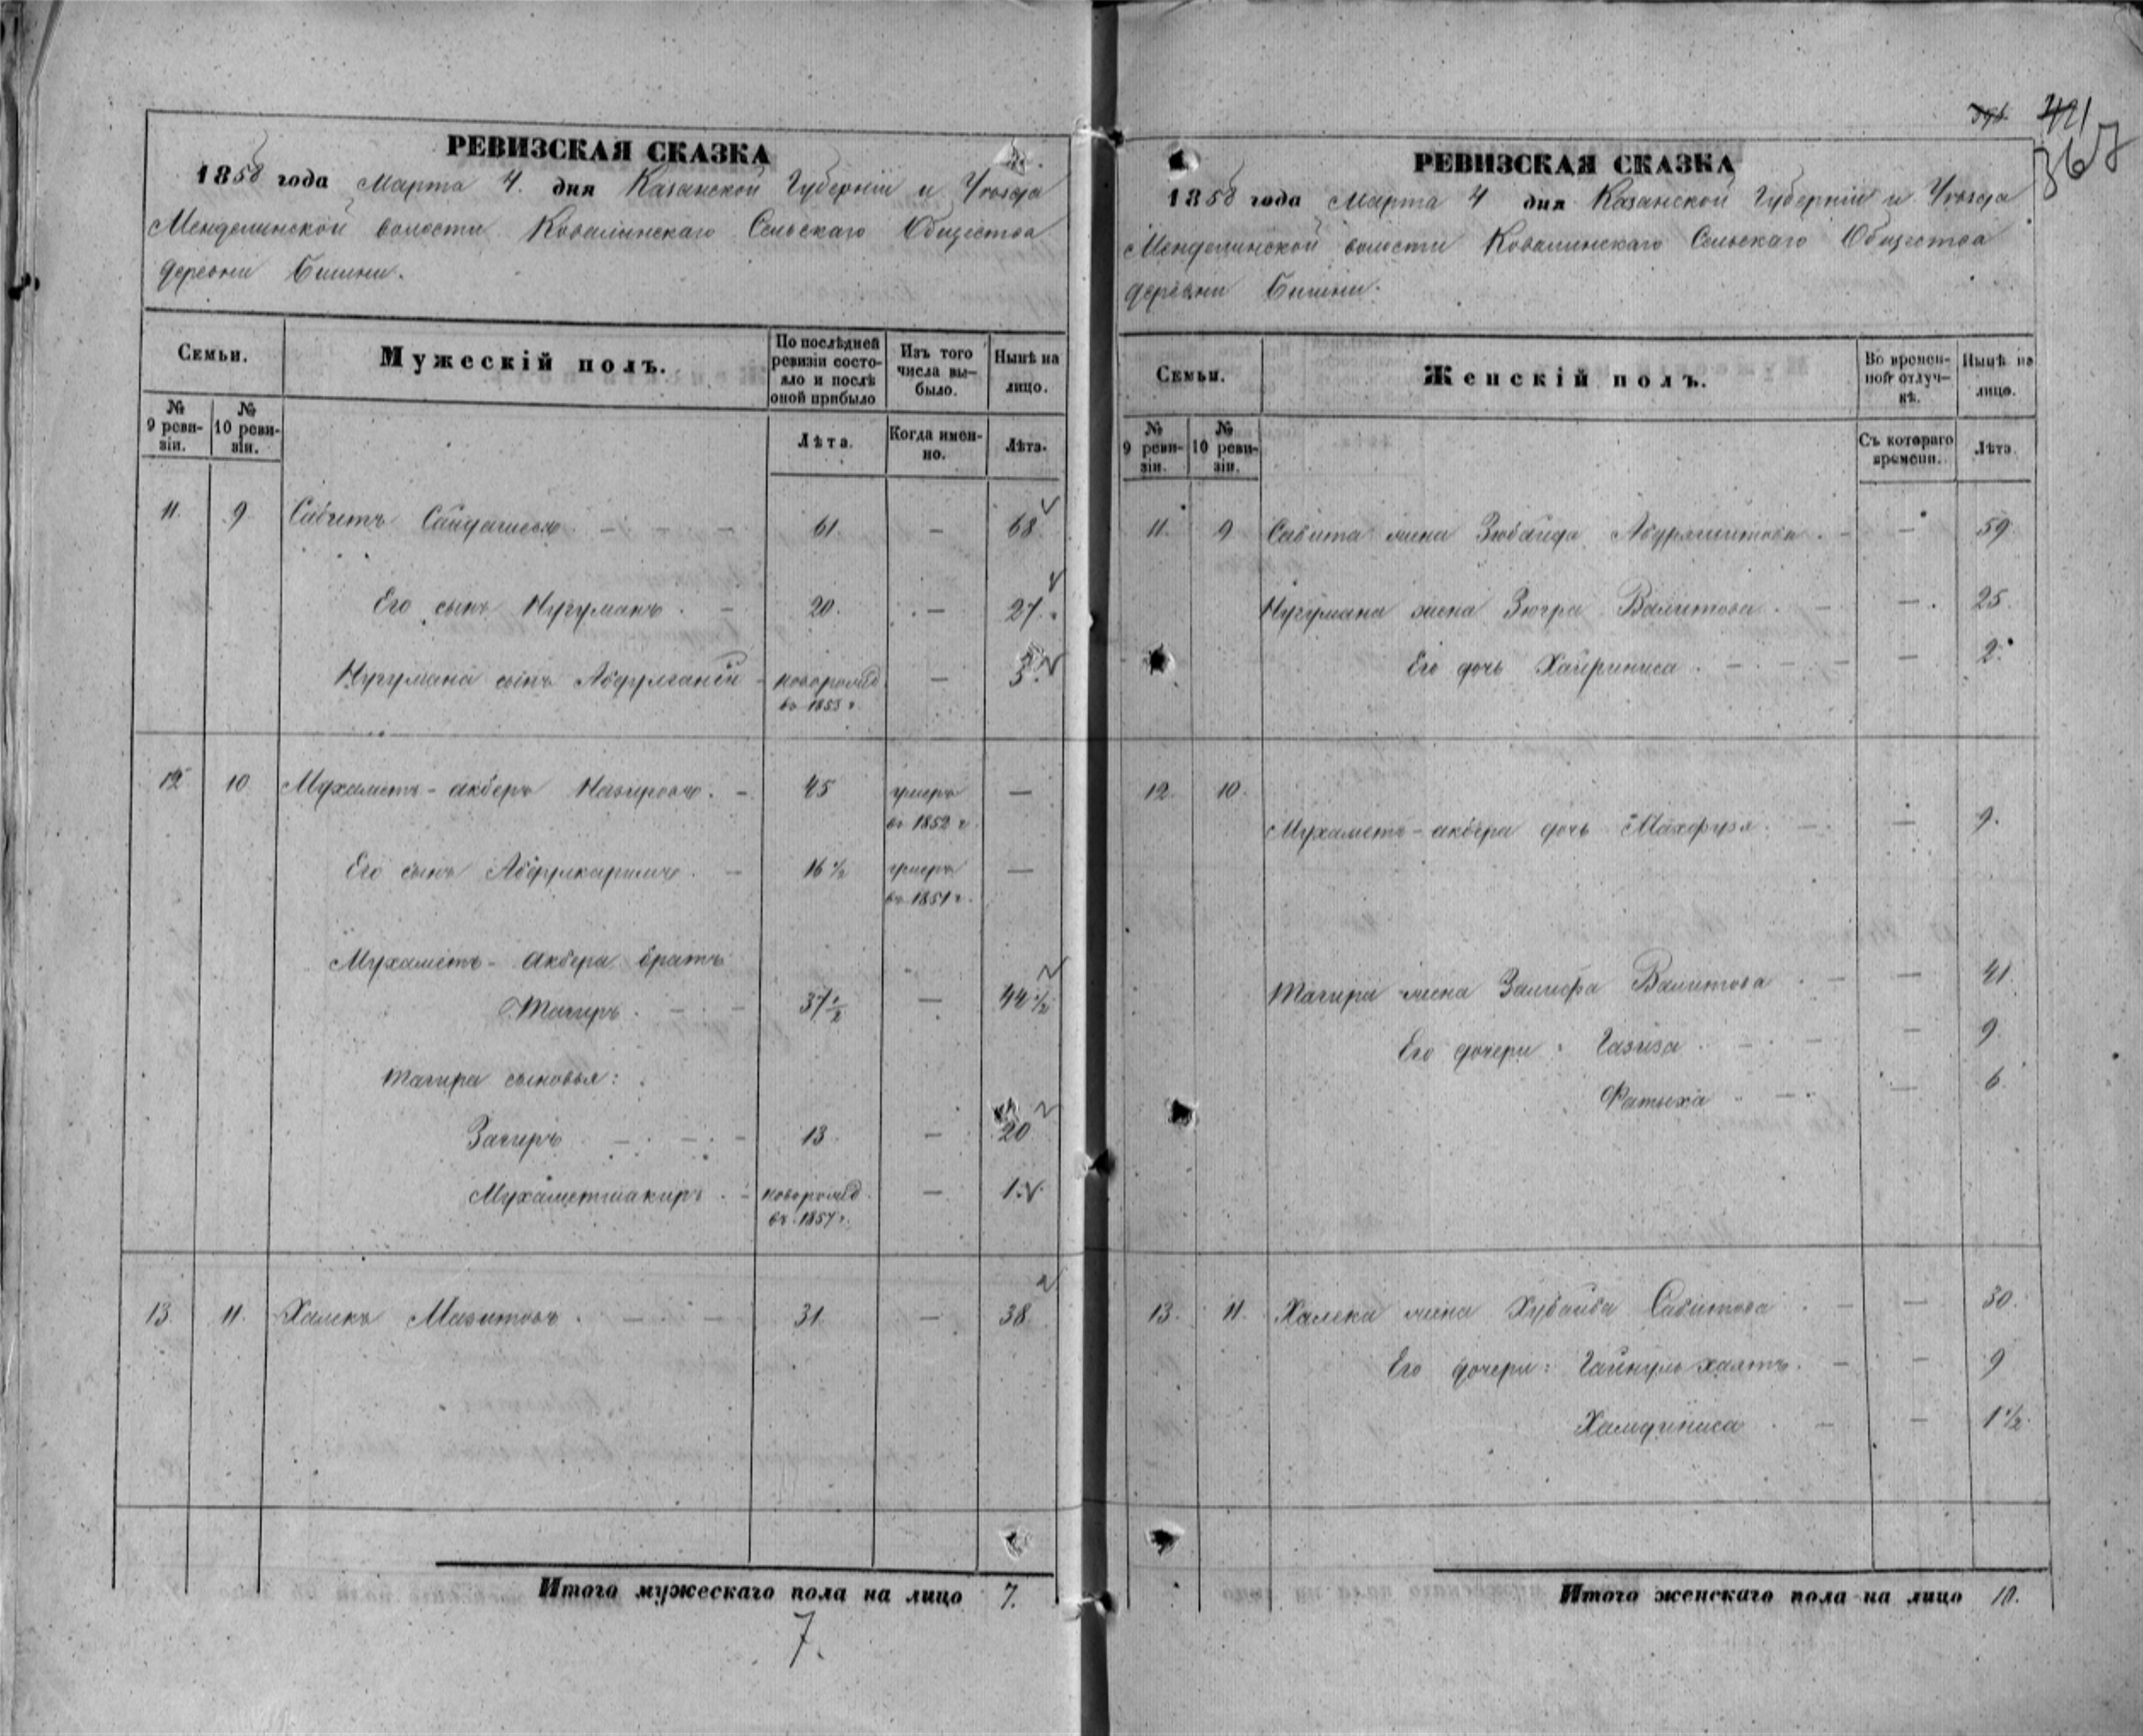 РЕВИЗСКАЯ СКАЗКА
1858 года Марта 4. дня Казанской Губерніи и Уѣзда
Менделинской волости Ковалинскаго Сельскаго Общества
деревни Бимери.
Семьи.
Мужескій полъ.
По послѣдней ревизіи состояло и послѣ оной прибыло
Изъ того числа выбыло.
Нынѣ на лицо.
№ 9 ревизіи.
№ 10 ревизіи.
Лѣта.
Когда именно.
Лѣта.
11. 9. Сабитъ Сайдашевъ 61. — 68
Его сынъ Нугуманъ. — 20. — 27.
Нугумана сынъ Абдулганій — новорожд. въ 1853 г. — 5.
12 10 Мухаметъ-акберъ Назировъ. — 45 умеръ въ 1852 г. —
Его сынъ Абдулкаримъ. — 16 ½ умеръ въ 1851 г. —
Мухаметъ-акбера братъ
Тагиръ. — 37 ½ — 44 ½
Тагира сыновья:
Загиръ — 13. — 20
Мухаметшакиръ. — новорожд. въ 1857 г. — 1.
13. 11. Халекъ Мазитовъ. — 31 — 38
Итого мужескаго пола на лицо 7.
7.
421
367
РЕВИЗСКАЯ СКАЗКА
1858 года Марта 4 дня Казанской Губерніи и Уѣзда
Менделинской волости Ковалинскаго Сельскаго Общества
деревни Бимери.
Семьи.
Женскій полъ.
Во временной отлучкѣ.
Нынѣ на лицо.
№ 9 ревизіи.
№ 10 ревизіи.
Съ котораго времени.
Лѣта.
11. 9 Сабита жена Зюбайда Абдряшитова. — — 59.
Нугумана жена Зюгра Валитова. — — 25.
Его дочь Хайриниса. — — 2.
12. 10. Мухаметъ-акбера дочь Махфузя. — — 9.
Тагира жена Залифа Валитова. — — 41.
Его дочери: Газиза. — — 9
Фатыха — — 6.
13. 11. Халека жена Хубайба Сабитова. — — 30.
Его дочери: Гайнульхаятъ. — — 9
Хамдиниса. — — 1 ½.
Итого женскаго пола на лицо 10.